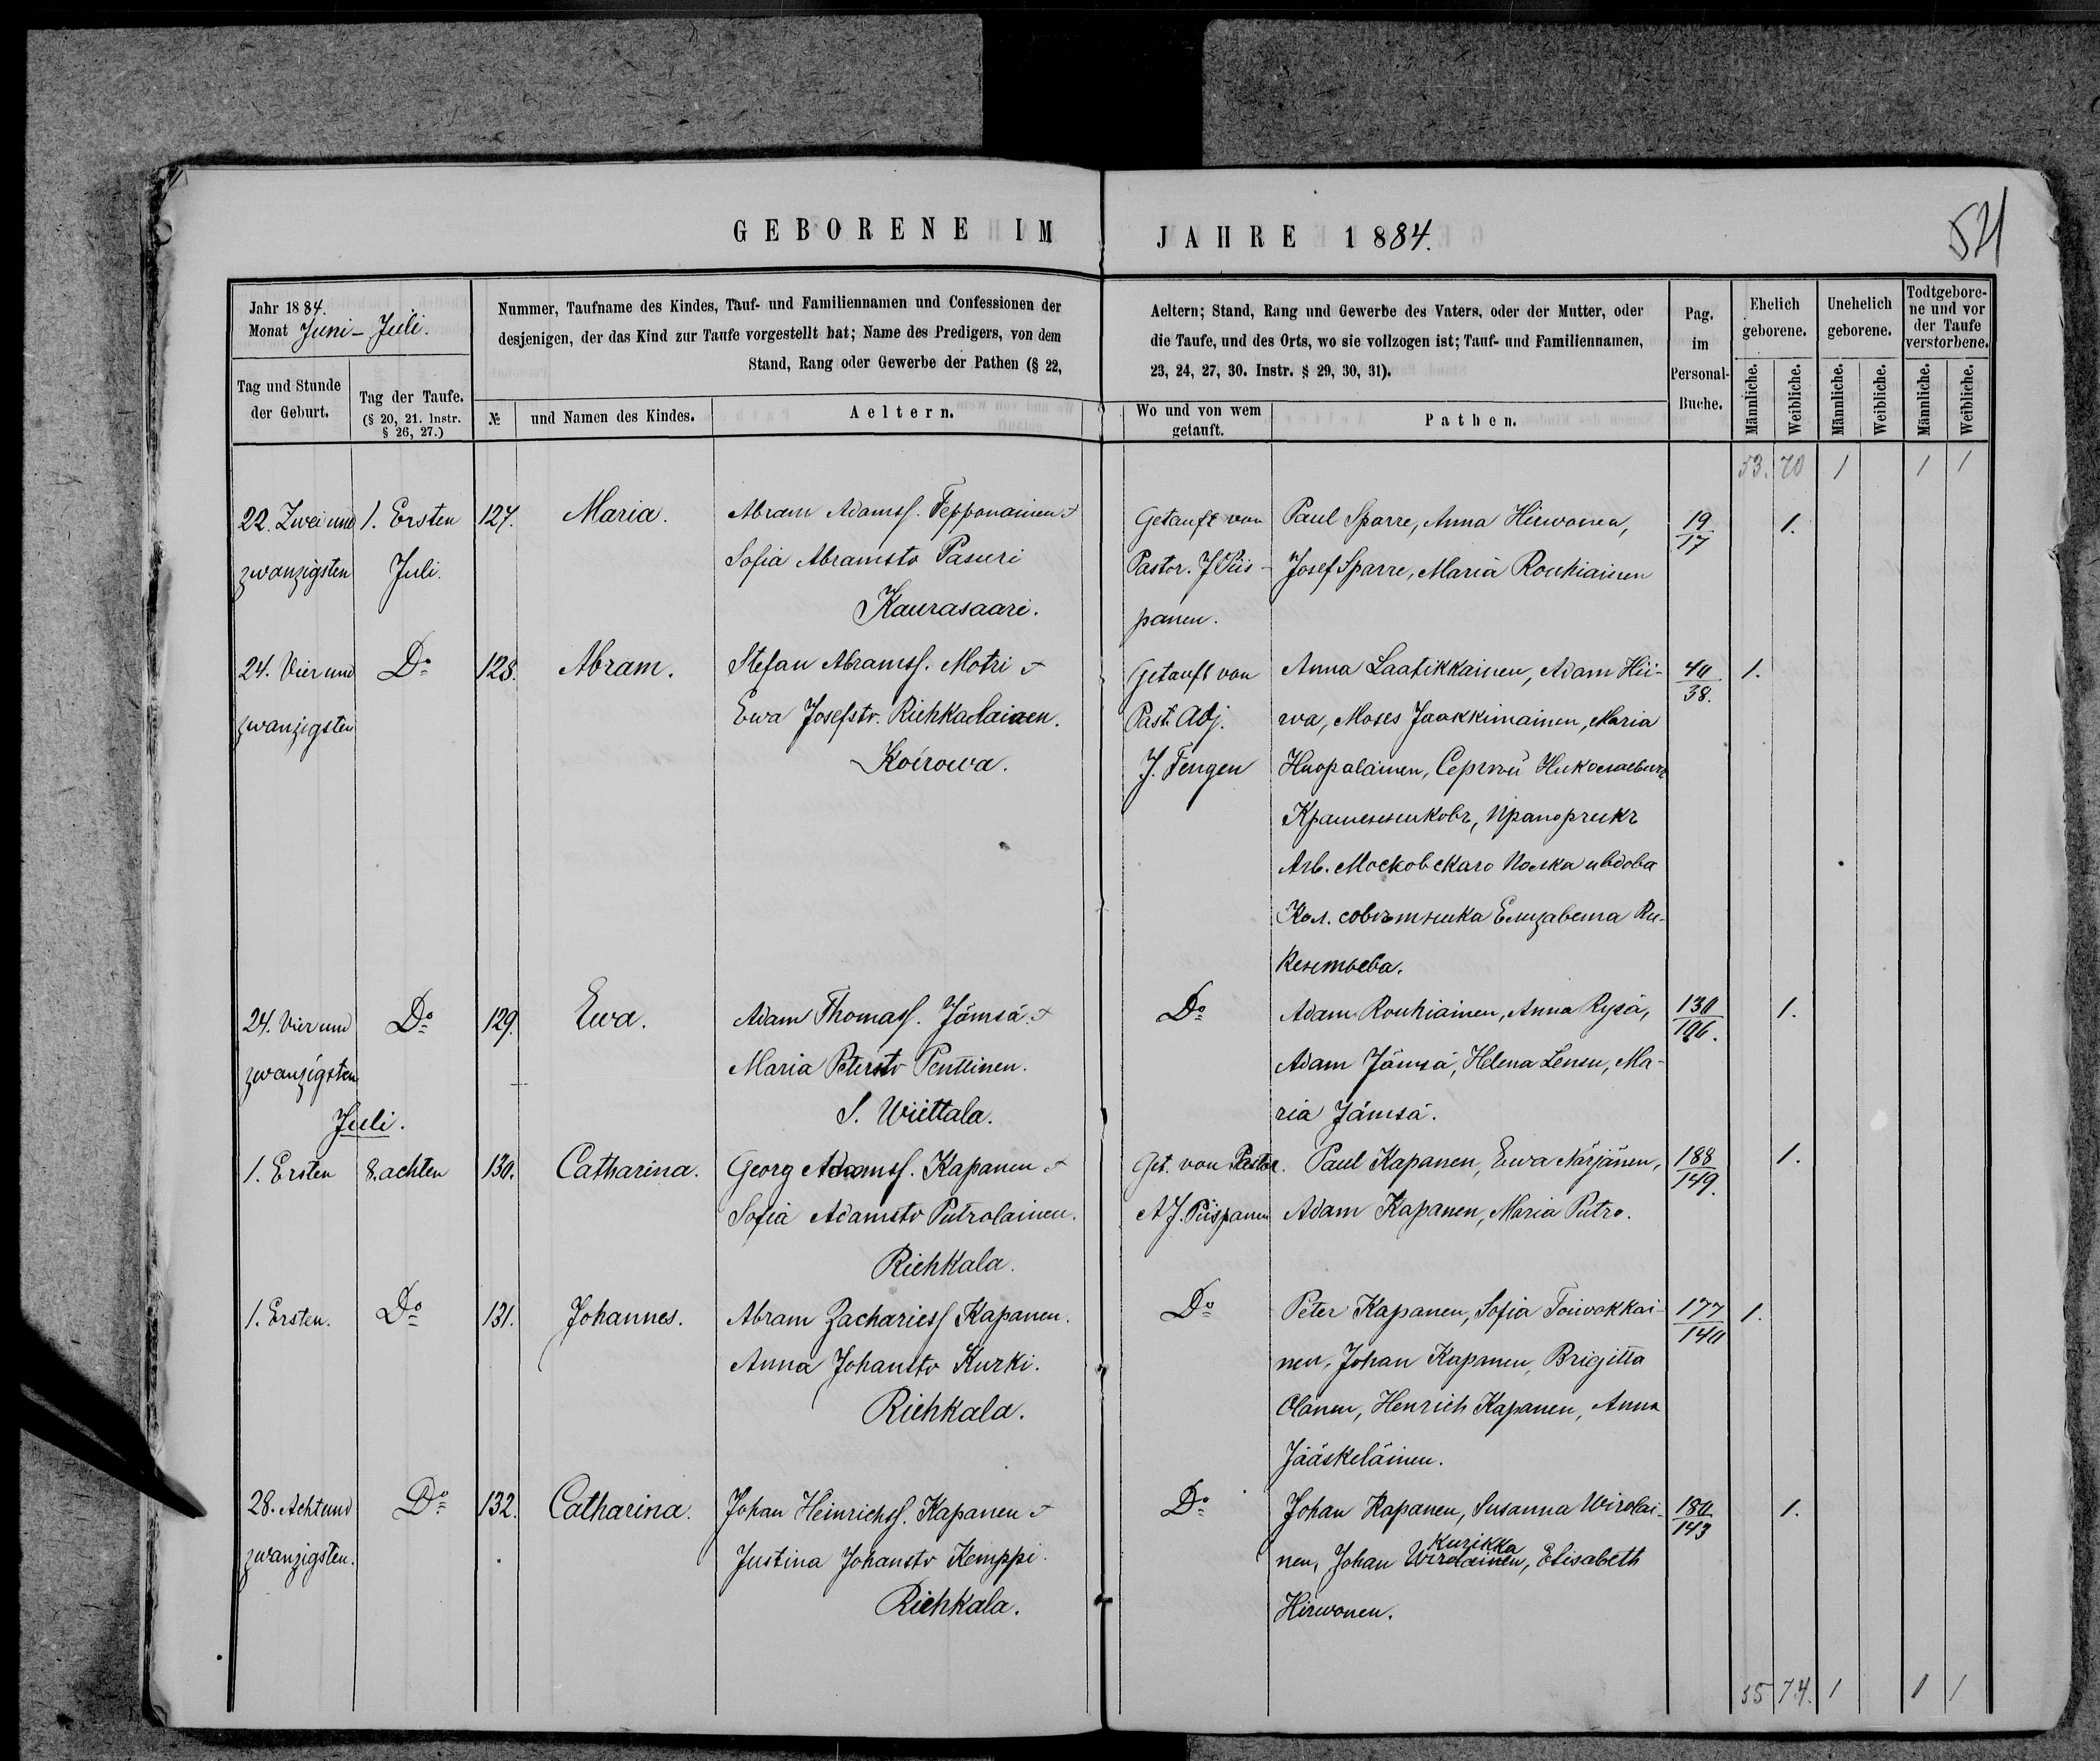 GEBORENE IM JAHRE 1884.
521
Jahr 1884.
Monat Juni - Juli.
Nummer, Taufname des Kindes, Tauf- und Familiennamen und Confessionen der
desjenigen, der das Kind zur Taufe vorgestellt hat; Name des Predigers, von dem
Stand, Rang oder Gewerbe der Pathen (§ 22,
Aeltern; Stand, Rang und Gewerbe des Vaters, oder der Mutter, oder
die Taufe, und des Orts, wo sie vollzogen ist; Tauf- und Familiennamen,
23, 24, 27, 30. Instr. § 29, 30, 31).
Pag.
im
Personal-
Buche.
Ehelich
geborene.
Unehelich
geborene.
Todtgebore-
ne und vor
der Taufe
verstorbene.
Tag und Stunde
der Geburt.
Tag der Taufe.
(§ 20, 21. Instr.
§ 26, 27.)
№
und Namen des Kindes.
Aeltern.
Wo und von wem
getauft.
Pathen.
Männliche.
Weibliche.
Männliche.
Weibliche.
Männliche.
Weibliche.
53. 70 1 1 1
22. Zwei und
zwanzigsten
1. Ersten
Juli.
127.
Maria.
Abram Adamss. Fepponainen &
Sofia Abramsto Pasuri
Kaurasaari.
Getauft von
Pastor. J Piis-
panen.
Paul Sparre, Anna Hirwonen,
Josef Sparre, Maria Rouhiainen
19
17
1.
24. Vier und
zwanzigsten
Do
128.
Abram.
Stefan Abramss. Motri &
Ewa Josefstr. Riehkalainen.
Koirowa.
Getauft von
Past. Adj.
J. Fengen
Anna Laatikkainen, Adam Hii-
rva, Moses Jaakkimainen, Maria
Huopalainen, Сергѣй Николаевичъ
Крашенниковъ,
Московскаго Полка и вдова
Кол. совѣтника Елизавета
40
38.
1.
24. Vier und
zwanzigsten
Do
129.
Ewa.
Adam Thomass. Jämsä &
Maria Petersto Penttinen.
S. Wiittala.
Do
Adam Rouhiainen, Anna Rysä,
Adam Jämsä, Helena Lenen, Ma-
ria Jämsä.
130
106.
1.
Juli.
1. Ersten
8. achten
130.
Catharina.
Georg Adamss. Kapanen &
Sofia Adamsto Putrolainen.
Riehkala.
Get. von Pastor.
A J. Piispanen
Paul Kapanen, Ewa Närjänen,
Adam Kapanen, Maria Putro.
188
149.
1.
1. Ersten.
Do
131.
Johannes.
Abram Zachariess Kapanen.
Anna Johansto Kurki.
Riehkala.
Do
Peter Kapanen, Sofia Toiwokkai-
nen, Johan Kapanen, Brigitta
Olanen, Henrich Kapanen, Anna
Jääskeläinen.
177
140
1.
28. Acht und
zwanzigsten.
Do
132.
Catharina.
Johan Heinrichss. Kapanen &
Justina Johansto Kemppi.
Riehkala.
Do
Johan Kapanen, Susanna Wirolai-
Kurikka
nen, Johan Wirolainen, Elisabeth
Hirwonen.
180
143
1.
55 74. 1 1 1